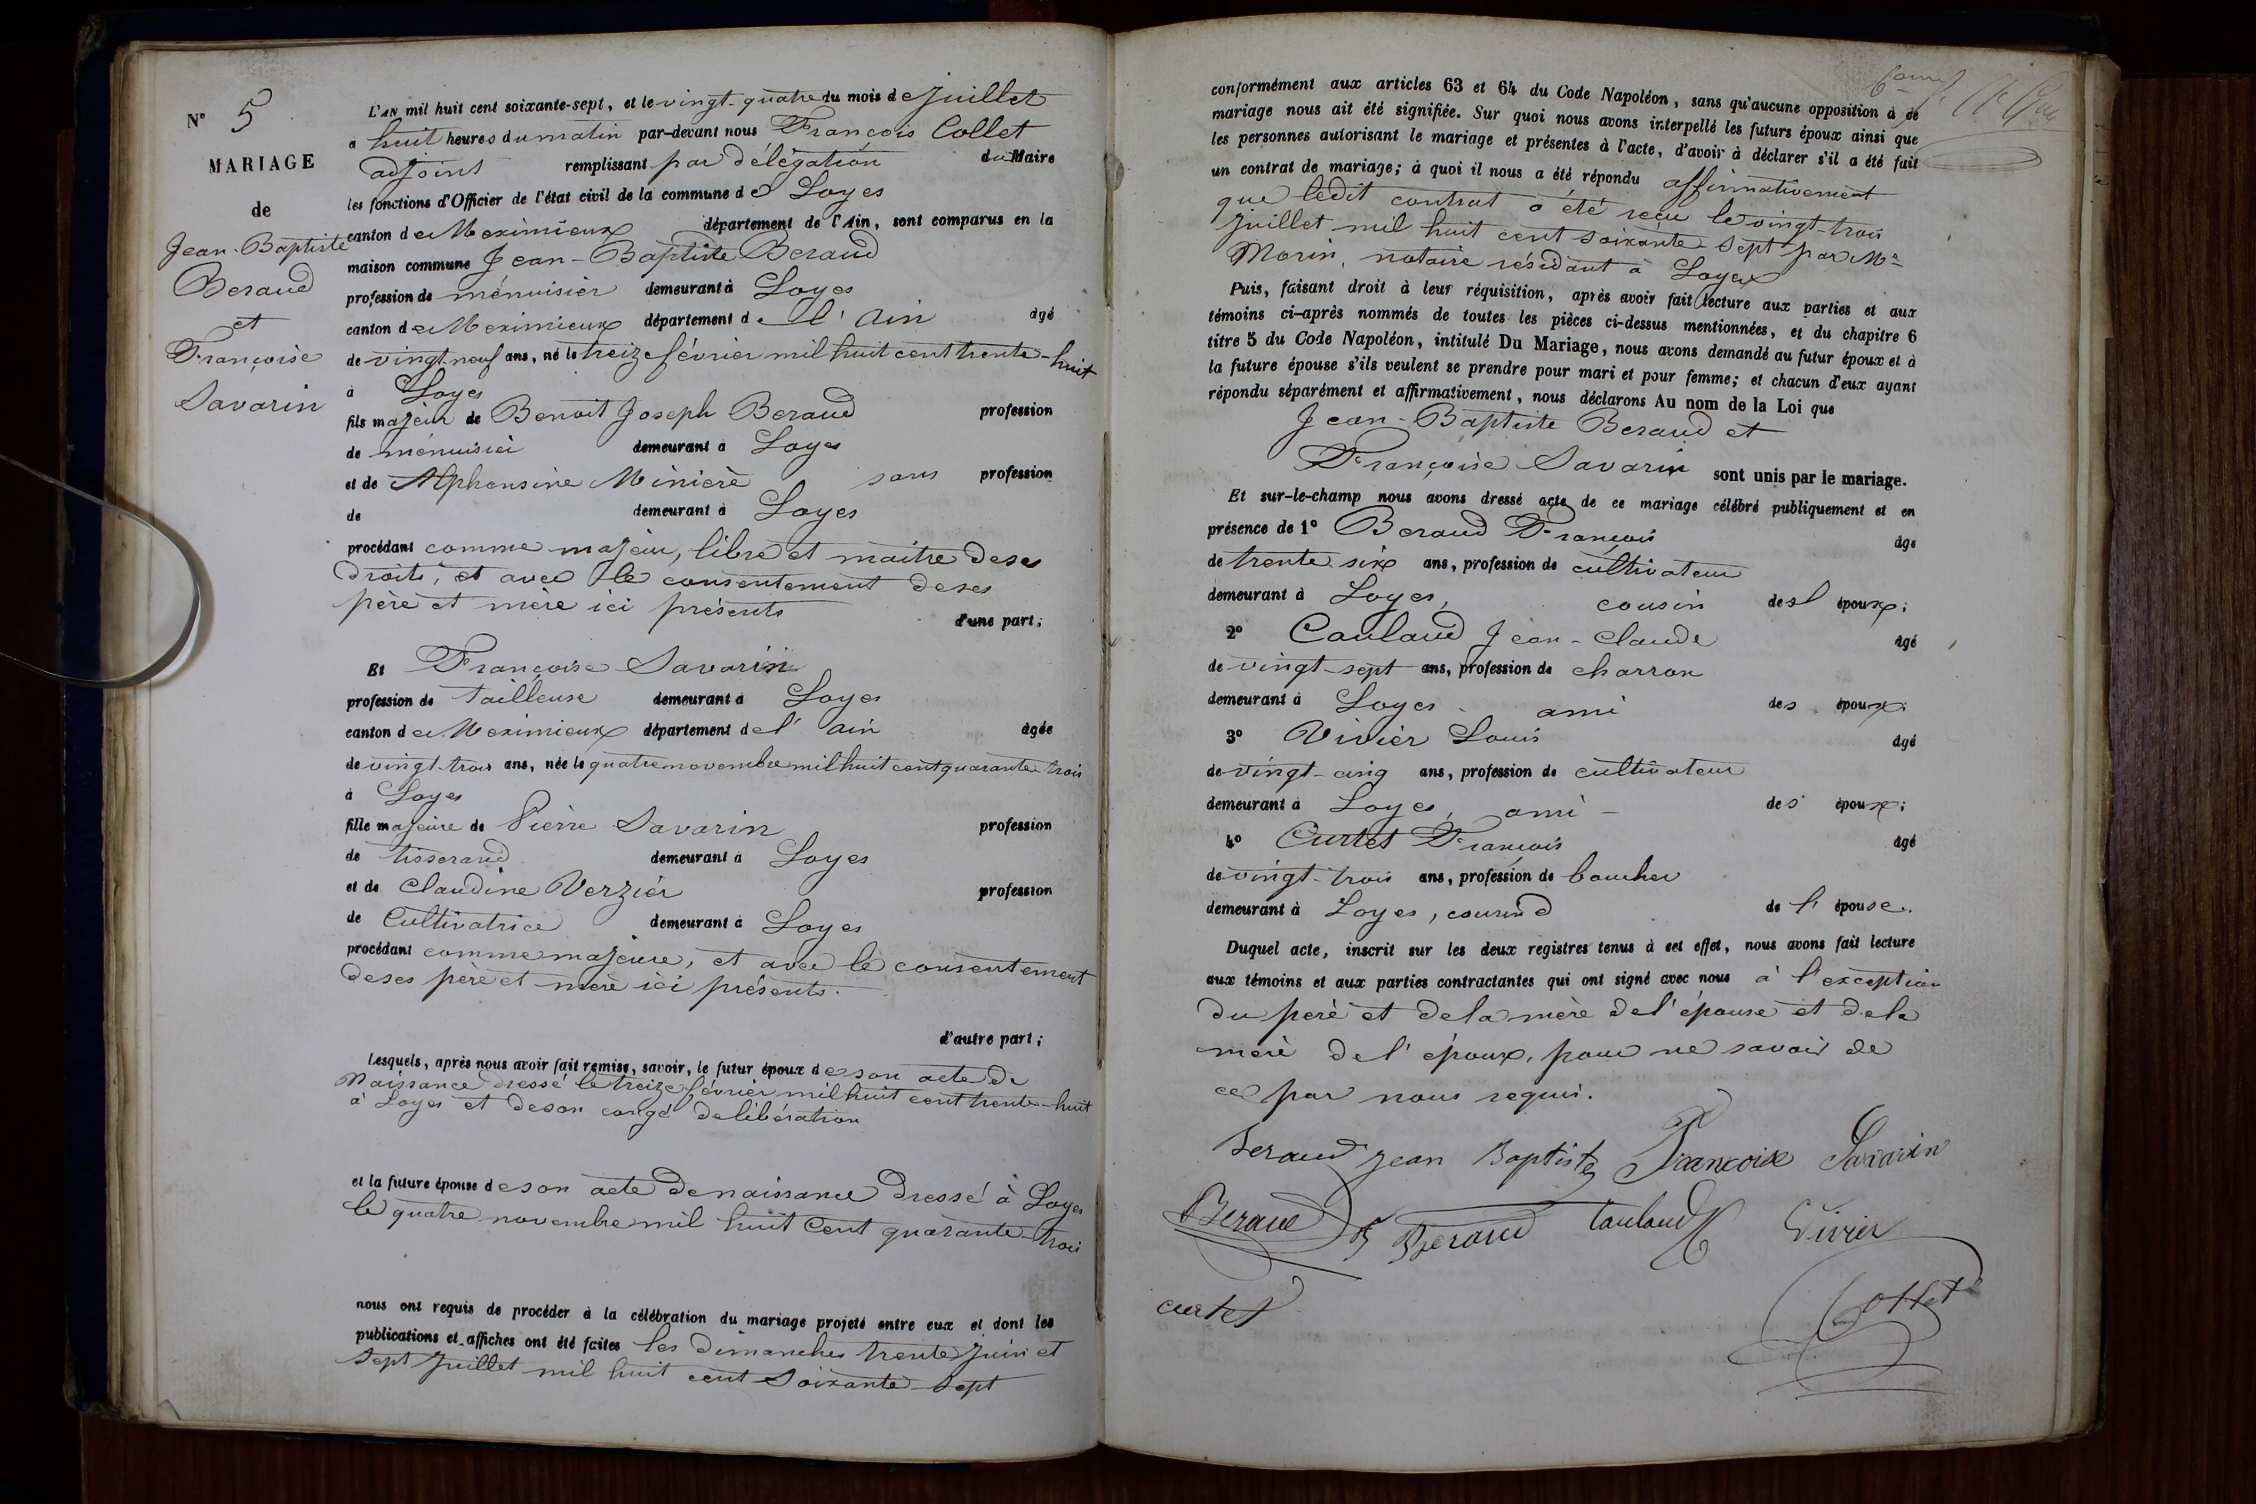 N° 5
MARIAGE
de
Jean-Baptiste
Beraud
et
Françoise
Savarin
L'AN mil huit cent soixante-sept, et le vingt-quatre du mois de juillet
a huit heures du matin par-devant nous François Collet
adjoint remplissant par délégation du Maire
les fonctions d'Officier de l'état civil de la commune de Loyes
canton de Meximieux département de l'Ain, sont comparus en la
maison commune Jean-Baptiste Beraud
profession de menuisier demeurant à Loyes
canton de Meximieux département de l'Ain âgé
de vingt-neuf ans, né le treize février mil huit cent trente-huit
à Loyes
fils majeur de Benoit Joseph Beraud profession
de menuisier demeurant à Loyes
et de Alphonsine Minière sans profession
de demeurant à Loyes
procédant comme majeur, libre et maitre de ses
droits, et avec le consentement de ses
père et mère ici présents
d'une part;
Et Françoise Savarin
profession de tailleuse demeurant à Loyes
canton de Meximieux département de l'Ain âgée
de vingt-trois ans, née le quatre novembre mil huit cent quarante-trois
à Loyes
fille majeure de Pierre Savarin profession
de tisserand demeurant à Loyes
et de Claudine Verzier profession
de Cultivatrice demeurant à Loyes
procédant comme majeure, et avec le consentement
de ses père et mère ici présents.
d'autre part;
Lesquels, après nous avoir fait remise, savoir, le futur époux de son acte de
Naissance dressé le treize février mil huit cent trente-huit
à Loyes et de son congé de libération
et la future épouse de son acte de naissance dressé à Loyes
le quatre novembre mil huit cent quarante-trois
nous ont requis de procéder à la célébration du mariage projeté entre eux et dont les
publications et affiches ont été faites les dimanches trente juin et
sept juillet mil huit cent soixante-sept
conformément aux articles 63 et 64 du Code Napoléon, sans qu'aucune opposition à de
mariage nous ait été signifiée. Sur quoi nous avons interpellé les futurs époux ainsi que
les personnes autorisant le mariage et présentes à l'acte, d'avoir à déclarer s'il a été fait
un contrat de mariage; à quoi il nous a été répondu affirmativement
que ledit contrat a été reçu le vingt-trois
juillet mil huit cent soixante-sept par Me
Morin, notaire résidant à Loyes
Puis, faisant droit à leur réquisition, après avoir fait lecture aux parties et aux
témoins ci-après nommés de toutes les pièces ci-dessus mentionnées, et du chapitre 6
titre 5 du Code Napoléon, intitulé Du Mariage, nous avons demandé au futur époux et à
la future épouse s'ils veulent se prendre pour mari et pour femme; et chacun d'eux ayant
répondu séparément et affirmativement, nous déclarons Au nom de la Loi que
Jean-Baptiste Beraud et
Françoise Savarin sont unis par le mariage.
Et sur-le-champ nous avons dressé acte de ce mariage célébré publiquement et en
présence de 1° Beraud François âge
de trente six ans, profession de cultivateur
demeurant à Loyes, cousin de l'époux;
2° Caulaud Jean-Claude âgé
de vingt-sept ans, profession de charron
demeurant à Loyes ami des époux;
3° Vivier Louis âgé
de vingt-cinq ans, profession de cultivateur
demeurant à Loyes, ami des époux;
4° Curtet François âgé
de vingt-trois ans, profession de boucher
demeurant à Loyes, cousin de l'épouse.
Duquel acte, inscrit sur les deux registres tenus à cet effet, nous avons fait lecture
aux témoins et aux parties contractantes qui ont signé avec nous à l'exception
du père et de la mère de l'épouse et de la
mère de l'époux, pour ne savoir de
ce par nous requis.
Beraud jean Baptiste Francoise Savarin
Beraud Beraud Caulaud Vivier
curtet Collet